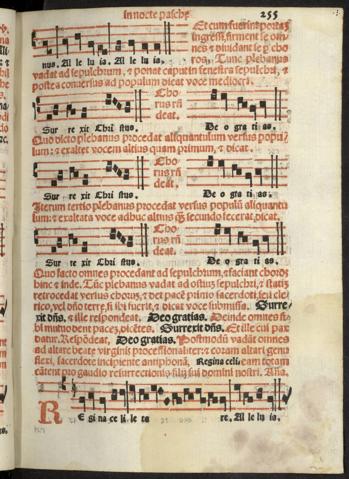 in nocte pasche
255
Et cum fuerint portaz
ingressi, firment se om-
nes & dividant se per cho-
nus. Alleluia. Alleluia.
ros, Tunc plebanus
vadat ad sepulchrum, & ponat caput in fenestra sepulchri, &
postea conversus ad populum dicat voce mediocri.
Cho-
rus rñ
deat.
Sur re xit Chri stus.
De o gra ti as.
Quo dicto plebanus procedat aliquantulum versus popu-
lum: & exaltet vocem altius quam primum, & dicat.
Cho-
rus rñ
deat.
Sur re xit Chri stus.
De o gra ti as.
Iterum tertio plebanus procedat versus populũ aliquantu
lum: & exaltata voce adhuc altius q̃ secundo fecerat, dicat.
Cho-
rus rñ
deat.
Sur re xit Chri stus.
De o gra ti as.
Quo facto omnes procedant ad sepulchrum, & faciant choros
hinc & inde. Tũc plebanus vadat ad ostiũ sepulchri, & statiz
retrocedat versus chorum, & det pacẽ primo sacerdoti, sei cle
rico, vel dño terre, si ibi fuerit, & dicat voce submissa. Surre-
xit dñs. & ille respondeat. Deo gratias. Deinde omnes si-
bi mutuo dent paces, dicẽtes. Surrexit dñs. Et ille cui pax
datur. Respõdeat, Deo gratias. Postmodũ vadãt omnes
ad altare beate virginis processionaliter: & coram altari genu
flexi, sacerdote incipiente antiphonã, Regina celi, eam totam
cãtent pro gaudio resurrectionis filii sui domini nostri. Añа.
R E gi na ce li. le ta re, Al le lu ia.